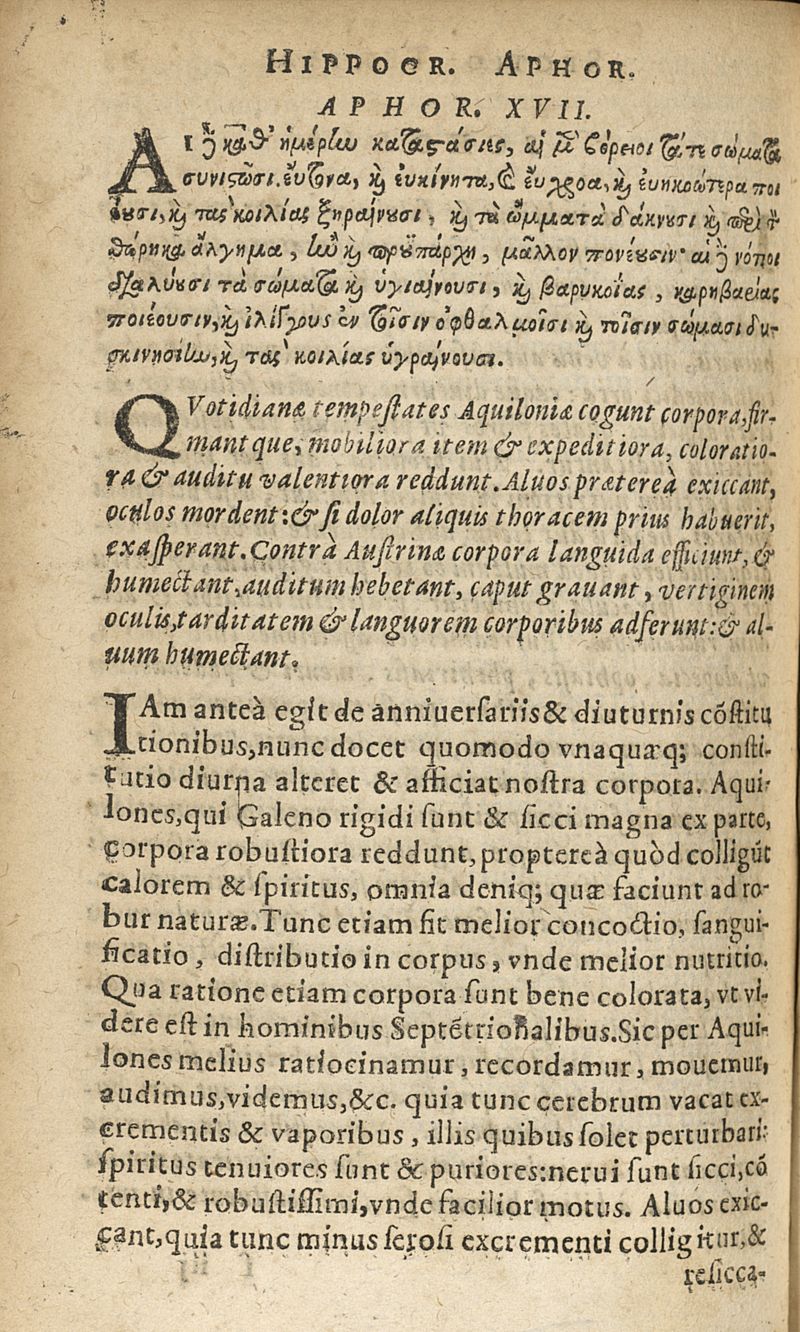 HIPPOCR. APHOR.
APHOR. XVII.
Αἱ δὲ καθ' ἡμέρην καταστάσιες, αἱ μὲν βόρειοι τά τε σώματα
συνιστῶσι, εὔτονα, καὶ εὐκίνητα, καὶ εὔχροα, καὶ εὐηκοώτερα ποι
έουσι, καὶ τὰς κοιλίας ξηραίνουσι, καὶ τὰ ὄμματα δάκνουσι καὶ περὶ τ
θώρηκα ἄλγημα, ἢν καὶ προϋπάρχῃ, μᾶλλον πονέουσιν· αἱ δὲ νότιοι
διαλύουσι τὰ σώματα καὶ ὑγιαίνουσι, καὶ βαρυκοΐας, καρηβαρίας
ποιέουσιν, καὶ ἰλίγγους ἐν τοῖσιν ὀφθαλμοῖσι καὶ τοῖσιν σώμασι δυ-
σκινησίην, καὶ τὰς κοιλίας ὑγραίνουσι.
QVotidianæ tempestates Aquiloniæ cogunt corpora, fir-
mantque, mobiliora item & expeditiora, coloratio-
ra & auditu valentiora reddunt. Aluos prætereà exiccant,
oculos mordent: & si dolor aliquis thoracem prius habuerit,
exasperant. Contrà Austrinæ corpora languida efficiunt, &
humectant, auditum hebetant, caput grauant, vertiginem
oculis, tarditatem & languorem corporibus adferunt: & al-
uum humectant.
IAm anteà egit de anniuersariis & diuturnis cõstitu
tionibus, nunc docet quomodo vnaquæq; consti-
tutio diurna alteret & afficiat nostra corpora. Aqui-
lones, qui Galeno rigidi sunt & sicci magna ex parte,
corpora robustiora reddunt, proptereà quòd colligũt
calorem & spiritus, omnia deniq; quæ faciunt ad ro-
bur naturæ. Tunc etiam fit melior concoctio, sangui-
ficatio, distributio in corpus, vnde melior nutritio.
Qua ratione etiam corpora sunt bene colorata, vt vi-
dere est in hominibus Septẽtrionalibus. Sic per Aqui-
lones melius ratiocinamur, recordamur, mouemur,
audimus, videmus, &c. quia tunc cerebrum vacat ex-
crementis & vaporibus, illis quibus solet perturbari:
spiritus tenuiores sunt & puriores: nerui sunt sicci, cõ
tenti, & robustissimi, vnde facilior motus. Aluos exic-
cant, quia tunc minus serosi excrementi colligitur, &
resicca-